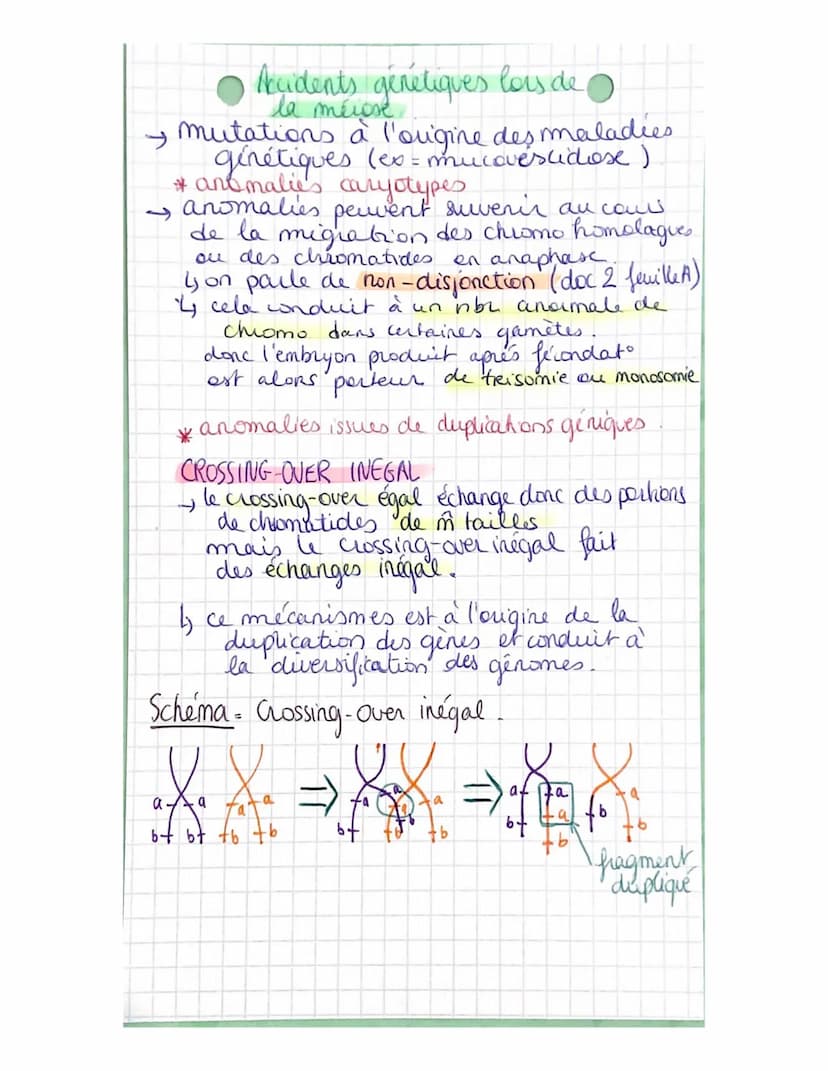 Accidents génétiques lors de
la méiose
→ mutations à l'origine des maladies
génétiques (ex = mucoviscidose)
* anomalies caryotypes
→ anomalies peuvent suvenir au cours
de la migration des chromo homologues
ou des chromatides en anaphase.
↳ on parle de non-disjonction (doc 2 feuille A)
↳ cela conduit à un nbr anormale de
chromo dans certaines gamètes.
donc l'embryon produit après fécondat°
est alors porteur de trisomie ou monosomie
* anomalies issues de duplications géniques.
CROSSING-OVER INEGAL
→ le crossing-over égal échange donc des portions
de chromatides de m̂ tailles
mais le crossing-over inégal fait
des échanges inégal.
↳ ce mécanismes est à l'origine de la
duplication des gènes et conduit à
la diversification des génomes.
Schéma = Crossing-Over inégal.
a a a a ⇒ a a a a ⇒ a a a a
b b b b b b b b b b b b
fragment
dupliqué